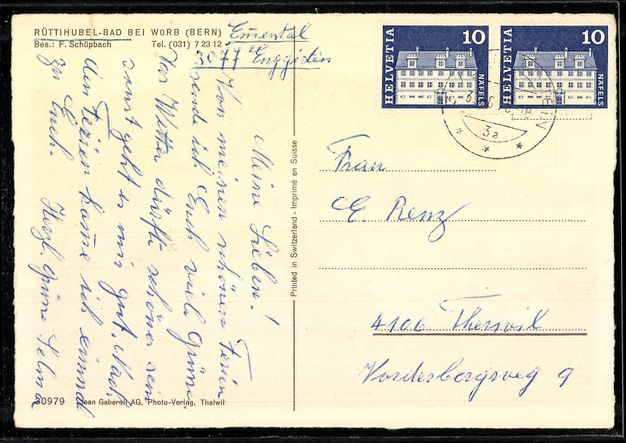 RÜTTIHUBEL-BAD BEI WORB (BERN)
Bes.: F. Schüpbach Tel. (031) 7 23 12
Emental
3077 Enggistein
Meine Lieben!
Von meinen schönen Ferien
sende ich Euch viele Grüsse
Das Wetter dürfte schöner sein
sonst geht es mir gut. Nach
den Ferien komme ich einmal
zu Euch. Herzl. Grüsse Selma
Printed in Switzerland - Imprimé en Suisse
HELVETIA 10 NÄFELS
HELVETIA 10 NÄFELS
3a
Frau
E. Renz
4106 Therwil
Vorderbergsweg 9
30979 Jean Gaberell AG, Photo-Verlag, Thalwil